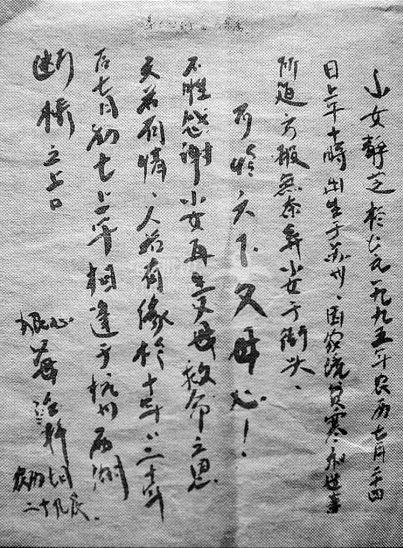 小女静芝於公元一九九五年农历七月二十四
日上午十時出生于苏州、因家境贫寒和世事
所迫万般無奈弃小女于街头、
可怜天下父母心!
不胜感谢小女再生父母救命之恩
天若有情、人若有缘於十年、二十年
后七月初七上午相逢于杭州西湖
断桥之上
狠心
农历七月
二十九夜.